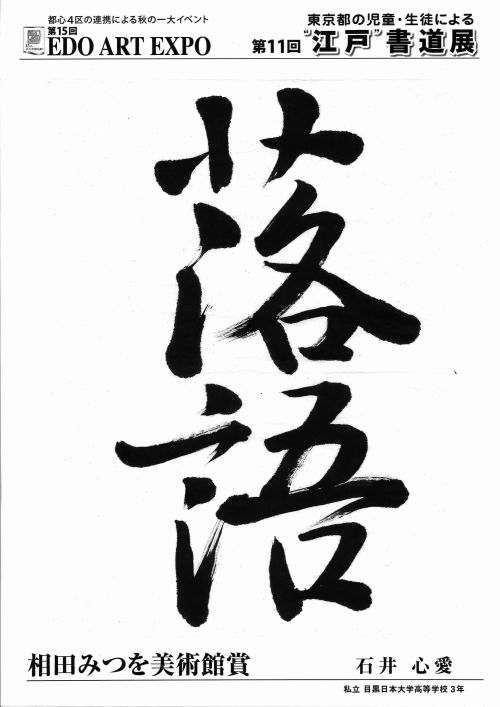 都心4区の連携による秋の一大イベント
第15回
EDO ART EXPO
東京都の児童・生徒による
第11回 “江戸”書道展
落
語
相田みつを美術館賞
石井 心愛
私立 目黒日本大学高等学校 3年